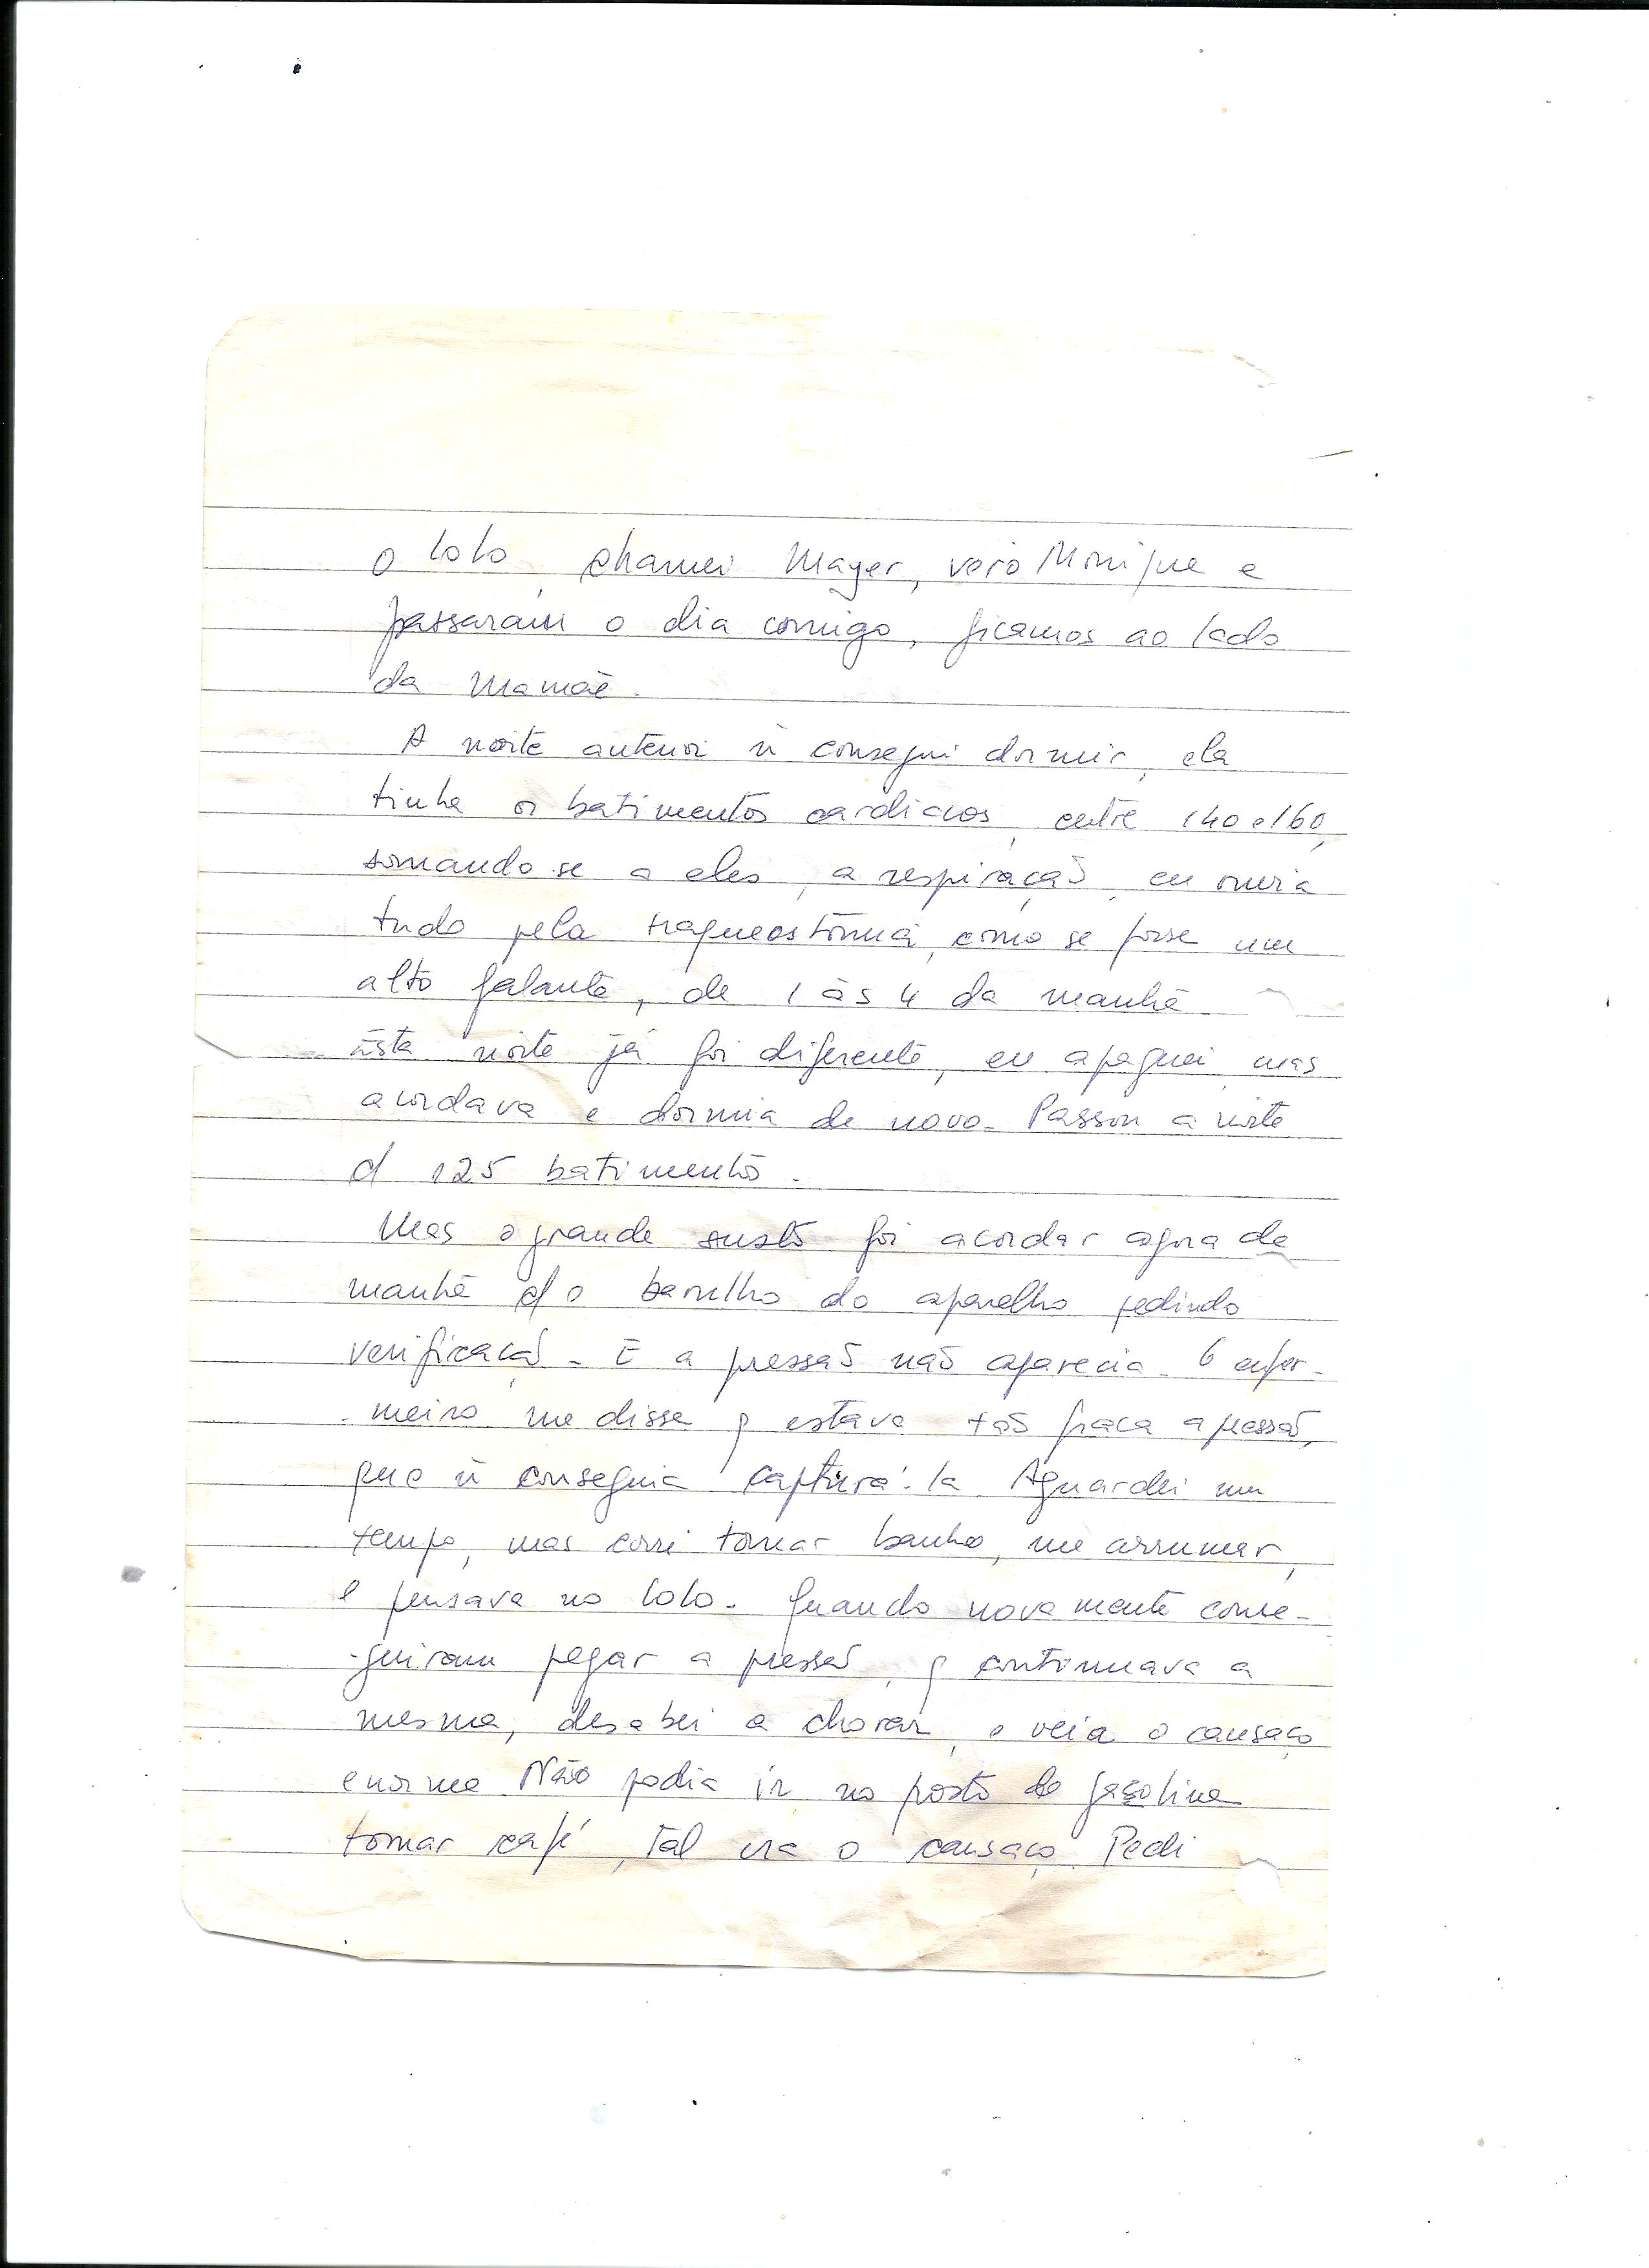 o Lolo, chamei Mayer, veio Monique e
passaram o dia comigo, ficamos ao lado
da Mamãe.
A noite anterior ñ consegui dormir, ela
tinha os batimentos cardiacos, entre 140 e 160,
somando-se a eles, a respiração, eu ouvia
tudo pela traqueostomia, como se fosse um
alto falante, de 1 às 4 da manhã.
Esta noite já foi diferente, eu apaguei, mas
acordava e dormia de novo. Passou a noite
c/ 125 batimentos.
Mas o grande susto foi acordar agora de
manhã c/ o barulho do aparelho pedindo
verificação. E a pressão não aparecia. O enfer-
-meiro me disse q estava tão fraca a pressão,
que ñ conseguia capturá-la. Aguardei um
tempo, mas corri tomar banho, me arrumar,
e pensava no Lolo. Quando novamente conse-
-guiram pegar a pressão, q continuava a
mesma, desabei a chorar, e veio o cansaço
enorme. Não podia ir no posto de gasolina
tomar café, tal era o cansaço. Pedi